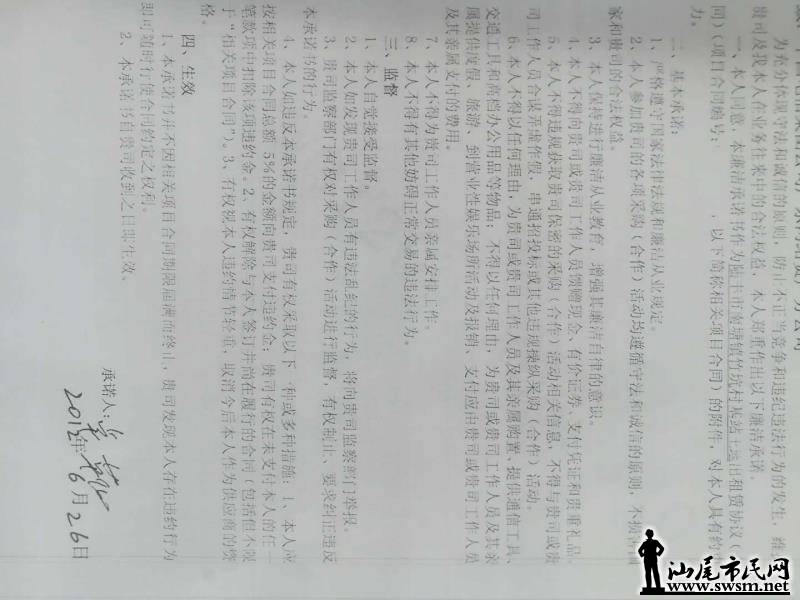 为充分体现守法和诚信的原则，防止不正当竞争和违纪违法行为的发生，维
贵司及我本人在业务往来中的合法权益，本人郑重作出以下廉洁承诺。
一、本人同意，本廉洁承诺书作为陆丰市
租赁协议（
同）（项目合同编号：      ，以下简称相关项目合同）的附件，对本人具有约
力。
二、基本承诺：
1、严格遵守国家法律法规和廉洁从业规定。
2、本人参加贵司的各项采购（合作）活动均遵循守法和诚信的原则，不损
家和贵司的合法权益。
3、本人保持进行廉洁从业教育，增强其廉洁自律的意识。
4、本人不得向贵司或贵司工作人员馈赠现金、有价证券、支付凭证和贵重礼品。
5、本人不得违规获取贵司保密的采购（合作）活动相关信息，不得与贵司或贵
司工作人员合谋弄虚作假、串通招投标或其他违规操纵采购（合作）活动。
6、本人不得以任何理由，为贵司或贵司工作人员及其亲属购置、提供通信工具、
交通工具和高档办公用品等物品；不得以任何理由，为贵司或贵司工作人员及其亲
属提供度假、旅游、到营业性娱乐场所活动及报销、支付应由贵司或贵司工作人员
及其亲属支付的费用。
7、本人不得为贵司工作人员亲属安排工作。
8、本人不得有其他妨碍正常交易的违法行为。
三、监督
1、本人自觉接受监督。
2、本人如发现贵司工作人员有违法乱纪的行为，将向贵司监察部门举报。
3、贵司监察部门有权对采购（合作）活动进行监督，有权制止、要求纠正违反
本承诺书的行为。
4、本人如违反本承诺书规定，贵司有权采取以下一种或多种措施：1、本人应
按相关项目合同总额 5%的金额向贵司支付违约金；贵司有权在未支付本人的任一
笔款项中扣除该项违约金。2、有权解除与本人签订并尚在履行的合同（包括但不限
于“相关项目合同”）。3、有权视本人违约情节轻重，取消今后本人作为供应商的资
格。
四、生效
1、本承诺书并不因相关项目合同期限届满而终止，贵司发现本人存在违约行为
即可随时行使合同约定之权利。
2、本承诺书自贵司收到之日即生效。
承诺人：
6月26日
汕尾市民网
www.swsm.net